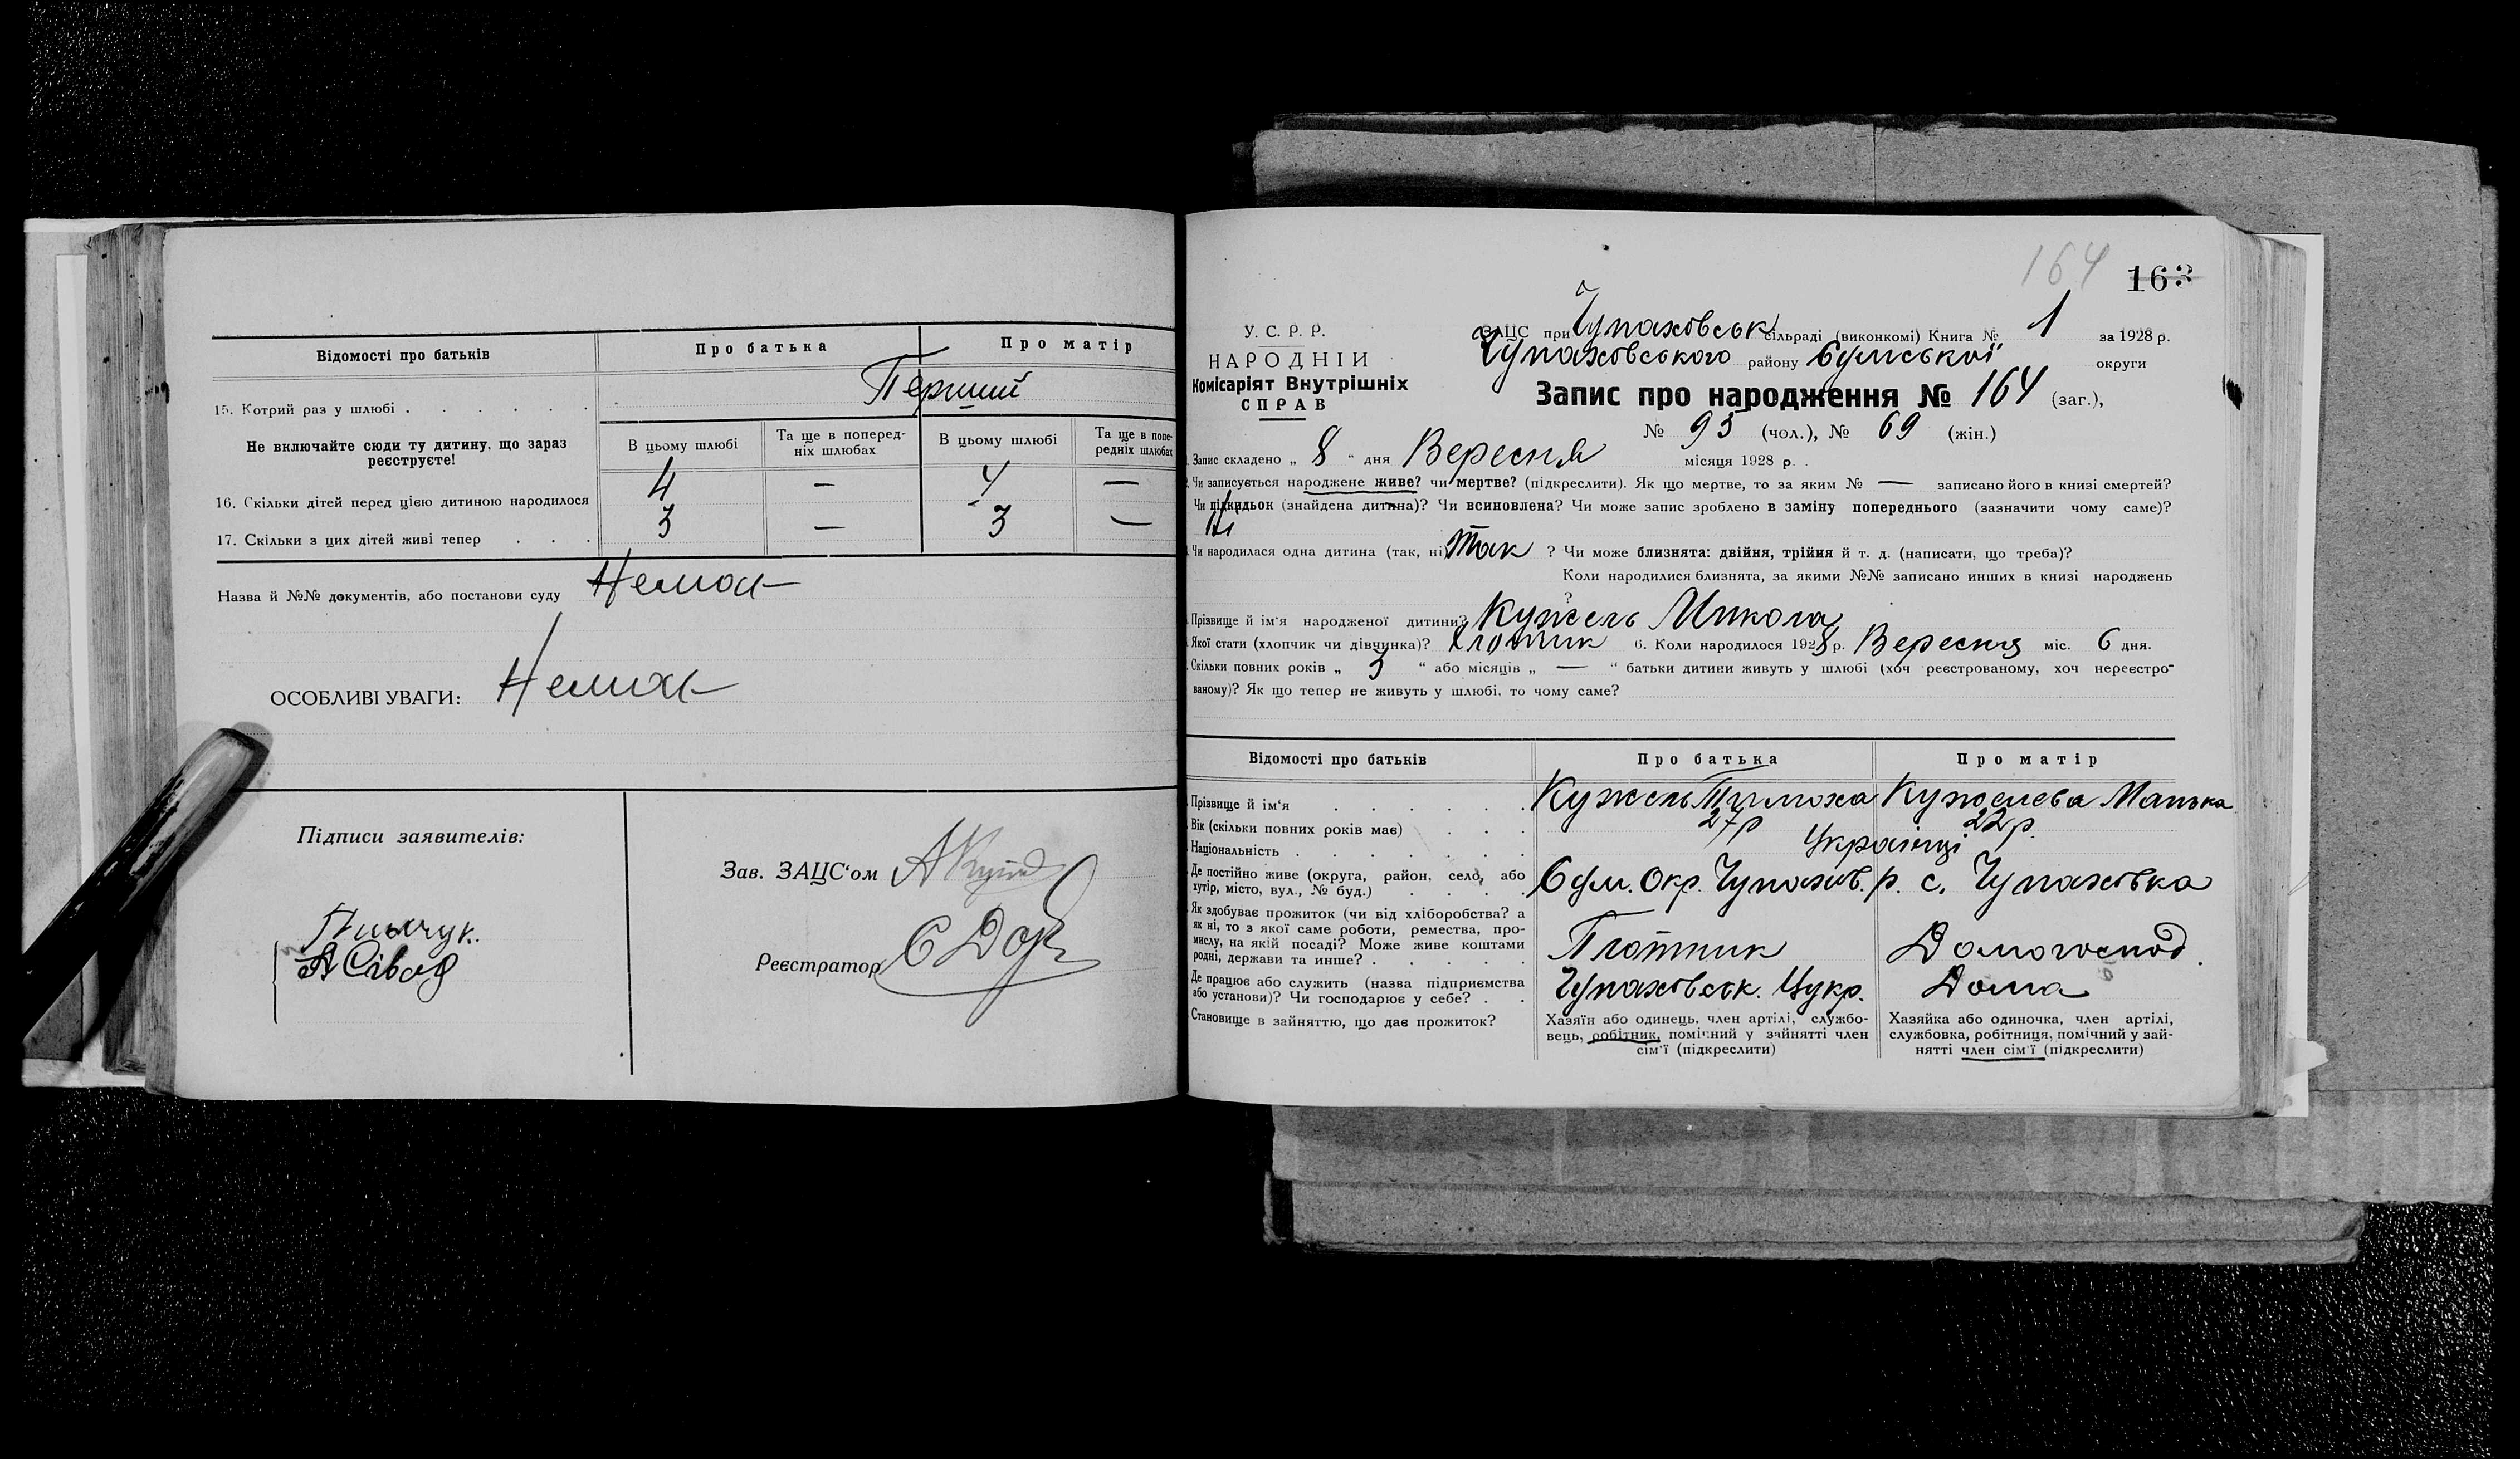 Відомості про батьків Про батька Про матір
15. Котрий раз у шлюбі . . . . . . Перший
Не включайте сюди ту дитину, що зараз реєструєте!
В цьому шлюбі Та ще в поперед-ніх шлюбах В цьому шлюбі Та ще в попе-редніх шлюбах
16. Скільки дітей перед цією дитиною народилося 4 — 4 —
17. Скільки з цих дітей живі тепер . . . 3 — 3 —
Назва й №№ документів, або постанови суду Немає
ОСОБЛИВІ УВАГИ: Немає
Підписи заявителів:
Зав. ЗАЦС‘ом
Реєстратор
164
163
У. С. Р. Р.
НАРОДНІЙ
Комісаріят Внутрішніх
СПРАВ
ЗАЦС при Чупаховськ сільраді (виконкомі) Книга № 1 за 1928 р.
Чупаховського району Сумської округи
Запис про народження № 164 (заг.),
№ 95 (чол.), № 69 (жін.)
Запис складено „ 8 “ дня Вересня місяця 1928 р.
Чи записується народжене живе? чи мертве? (підкреслити). Як що мертве, то за яким № — записано його в книзі смертей?
Чи підкидьок (знайдена дитина)? Чи всиновлена? Чи може запис зроблено в заміну попереднього (зазначити чому саме)?
Ні
Чи народилася одна дитина (так, ні) Так ? Чи може близнята: двійня, трійня й т. д. (написати, що треба)?
Коли народилися близнята, за якими №№ записано инших в книзі народжень
?
Прізвище й ім‘я народженої дитини? Кужель Микола
Якої стати (хлопчик чи дівчинка)? Хлопчик 6. Коли народилося 1928 р. Вересня міс. 6 дня.
Скільки повних років „ 3 “ або місяців „ — “ батьки дитини живуть у шлюбі (хоч реєстрованому, хоч нереєстро-
ваному)? Як що тепер не живуть у шлюбі, то чому саме?
Відомості про батьків Про батька Про матір
Прізвище й ім‘я . . . . . . Кужель Тимоха Кужелева Манька
Вік (скільки повних років має) . . . 27 р 22 р.
Національність . . . . . . Українці
Де постійно живе (округа, район, село, або
хутір, місто, вул., № буд.) . . . . Сум. Окр. Чупахів. р. с. Чупахівка
Як здобуває прожиток (чи від хліборобства? а
як ні, то з якої саме роботи, ремества, про-
мислу, на якій посаді? Може живе коштами
родні, держави та инше? . . . . . Плотник Домогоспод.
Де працює або служить (назва підприємства
або установи)? Чи господарює у себе? . . Чупаховськ. Цукр. Дома
Становище в зайняттю, що дає прожиток?
Хазяїн або одинець, член артілі, службо-
вець, робітник, помічний у зайнятті член
сім‘ї (підкреслити)
Хазяйка або одиночка, член артілі,
службовка, робітниця, помічний у зай-
нятті член сім‘ї (підкреслити)